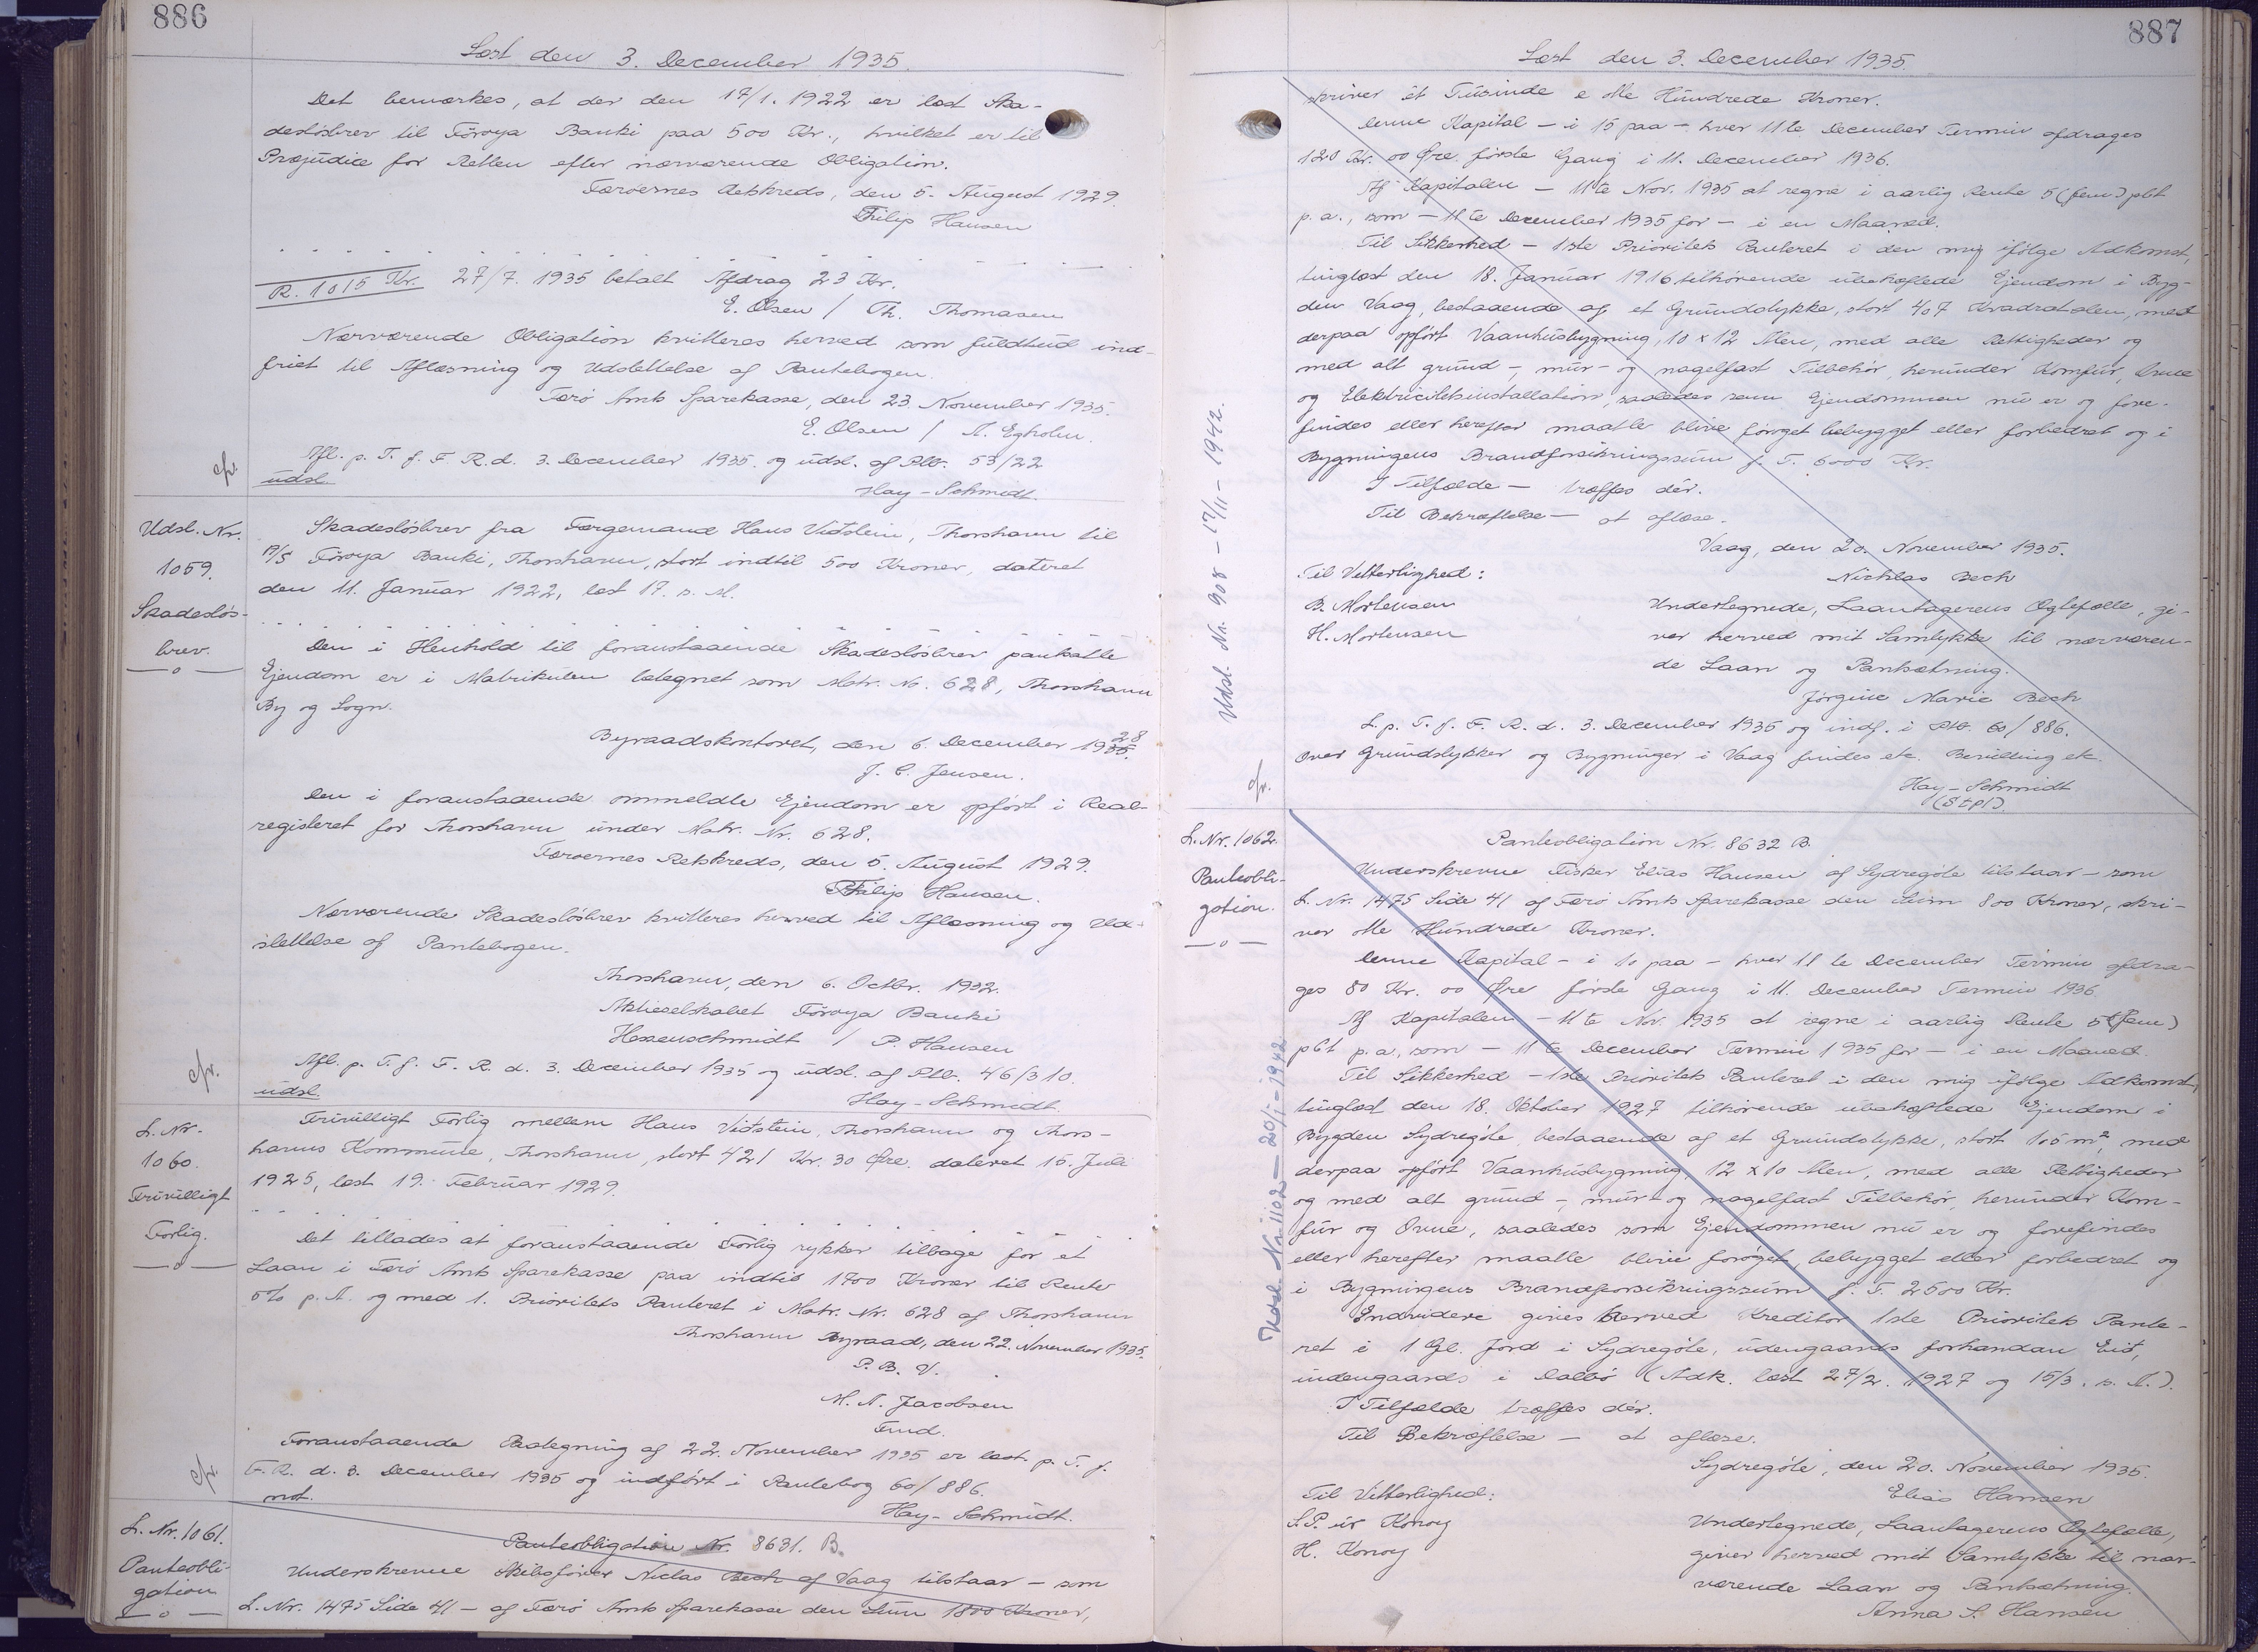 886
Læst den 3. December 1935.
Det bemærkes, at der den 17/1. 1922 er læst Ska-
desløsbrev til Föroya Banki paa 500 Kr., hvilket er til
Præjudice for Retten efter nærværende Obligation.
Færøernes Retskreds, den 5. August 1929.
Filip Hansen
R. 1015 Kr. 27/7. 1935 betalt Afdrag 23 Kr.
E. Olsen / Th. Thomasen
Nærværende Obligation kvitteres herved som fuldtud ind-
friet til Aflæsning og Udslettelse af Pantebogen.
Færø Amts Sparekasse, den 23. November 1935.
E. Olsen / A. Egholm.
cfr. Afl. p. T. f. F. R. d. 3. December 1935 og udsl. af Ptb. 53/22
udsl.
Hay-Schmidt.
Udsl. Nr.
1059.
Skadesløs-
brev.
Skadesløsbrev fra Færgemand Hans Viðstein, Thorshavn til
A/S Föroya Banki, Thorshavn, stort indtil 500 Kroner, dateret
den 11. Januar 1922, læst 17. s. M.
Den i Henhold til foranstaaende Skadesløsbrev pantsatte
Ejendom er i Matrikulen betegnet som Matr. No. 628, Thorshavn
By og Sogn.
Byraadskontoret, den 6. December 1928.
J. C. Jensen.
Den i foranstaaende ommeldte Ejendom er opført i Real-
registeret for Thorshavn under Matr. Nr. 628.
Færøernes Retskreds, den 5. August 1929.
Filip Hansen.
Nærværende Skadesløsbrev kvitteres herved til Aflæsning og Ud-
slettelse af Pantebogen.
Thorshavn, den 6. Octbr. 1932.
Aktieselskabet Föroya Banki
Hessenschmidt / P. Hansen
cfr. Afl. p. T. f. F. R. d. 3. December 1935 og udsl. af Ptb. 46/310.
udsl.
Hay-Schmidt.
L. Nr.
1060.
Frivilligt
Forlig.
Frivilligt Forlig mellem Hans Viðstein, Thorshavn og Thors-
havns Kommune, Thorshavn, stort 421 Kr. 30 Øre. dateret 15. Juli
1925, læst 19. Februar 1929.
Det tillades at foranstaaende Forlig rykker tilbage for et
Laan i Færø Amts Sparekasse paa indtil 1700 Kroner til Rente
5% p. A. og med 1. Prioritets Panteret i Matr. Nr. 628 af Thorshavn
Thorshavn Byraad, den 22. November 1935.
P. B. V.
M. A. Jacobsen
Fmd.
Foranstaaende Paategning af 22. November 1935 er læst p. T. f.
cfr. F. R. d. 3. December 1935 og indført i Pantebog 60/886.
not.
Hay-Schmidt.
L. Nr. 1061.
Panteobli-
gation
Panteobligation Nr. 8631. B.
Underskrevne Skibsfører Niclas Bech af Vaag tilstaar - som
L. Nr. 1475 Side 41 - af Færø Amts Sparekasse den Sum 1800 Kroner,
887
Læst den 3. December 1935.
skriver èt Tusinde e otte Hundrede Kroner.
Denne Kapital - i 15 paa - hver 11te December Termin afdrages
120 Kr. 00 Øre. første Gang i 11. December 1936.
Af Kapitalen - 11te Nov. 1935 at regne i aarlig Rente 5 (fem) pCt
p. a., som - 11te December 1935 for - i en Maaned.
Til Sikkerhed - 1ste Prioritets Panteret i den mig ifølge Adkomst,
tinglæst den 18. Januar 1916 tilhørende ubehæftede Ejendom i Byg-
den Vaag, bestaaende af et Grundstykke, stort 407 Kvadratalen, med
derpaa opført Vaanhusbygning, 10 x 12 Alen, med alle Rettigheder og
med alt grund-, mur- og nagelfast Tilbehør, herunder Komfur, Ovne
og Elektricitetsinstallation, saaledes som Ejendommen nu er og fore-
findes eller herefter maatte blive forøget bebygget eller forbedret og i
Bygningens Brandforsikringssum f. T. 6000 Kr.
I Tilfælde - træffes dér.
Til Bekræftelse - at aflæse.
Vaag, den 20. November 1935.
Til Vitterlighed:
Nichlas Bech
B. Mortensen
H. Mortensen
Undertegnede, Laantagerens Ægtefælle, gi-
ver herved mit Samtykke til nærværen-
de Laan og Pantsætning.
Jørgine Marie Bech
L. p. T. f. F. R. d. 3. December 1935 og indf. i Ptb. 60/886.
Over Grundstykker og Bygninger i Vaag findes etc. Bevilling etc.
cfr.
Hay-Schmidt
(Stpl).
Udsl. Nr. 908 - 17/11 - 1942.
L. Nr. 1062.
Panteobli-
gation.
Panteobligation Nr. 8632 B.
Underskrevne Fisker Elias Hansen af Sydregöte tilstaar - som
L. Nr. 1475 Side 41 af Færø Amts Sparekasse den Sum 800 Kroner, skri-
ver otte Hundrede Kroner.
Denne Kapital - i 10 paa - hver 11te December Termin afdra-
ges 80 Kr. 00 Øre første Gang i 11. December Termin 1936.
Af Kapitalen - 11te Nov. 1935 at regne i aarlig Rente 5 (fem)
pCt p. a., som - 11te December Termin 1935 for - i en Maaned.
Til Sikkerhed - 1ste Prioritets Panteret i den mig ifølge Adkomst,
tinglæst den 18. Oktober 1927 tilhørende ubehæftede Ejendom i
Bygden Sydregöte, bestaaende af et Grundstykke, stort 105 m², med
derpaa opført Vaanhusbygning, 12 x 10 Alen, med alle Rettigheder
og med alt grund-, mur- og nagelfast Tilbehør, herunder Kom-
fur og Ovne, saaledes som Ejendommen nu er og forefindes
eller herefter maatte blive forøget, bebygget eller forbedret og
i Bygningens Brandforsikringssum f. T. 2500 Kr.
Endvidere gives herved Kreditor 1ste Prioritets Pante-
ret i 1 Gl. Jord i Sydregöte, udengaards forhandan Eið,
indengaards i Dalbö (Adk. læst 27/2. 1927 og 15/3. s. A.).
I Tilfælde træffes dér.
Til Bekræftelse - at aflæse.
Sydregöte, den 20. November 1935.
Til Vitterlighed:
Elias Hansen
S. P. úr Konoy
H. Konoy
Undertegnede, Laantagerens Ægtefælle,
giver herved mit Samtykke til nær-
værende Laan og Pantsætning.
Anna S. Hansen
Udsl. Nr. 1102 - 20/1 - 1942